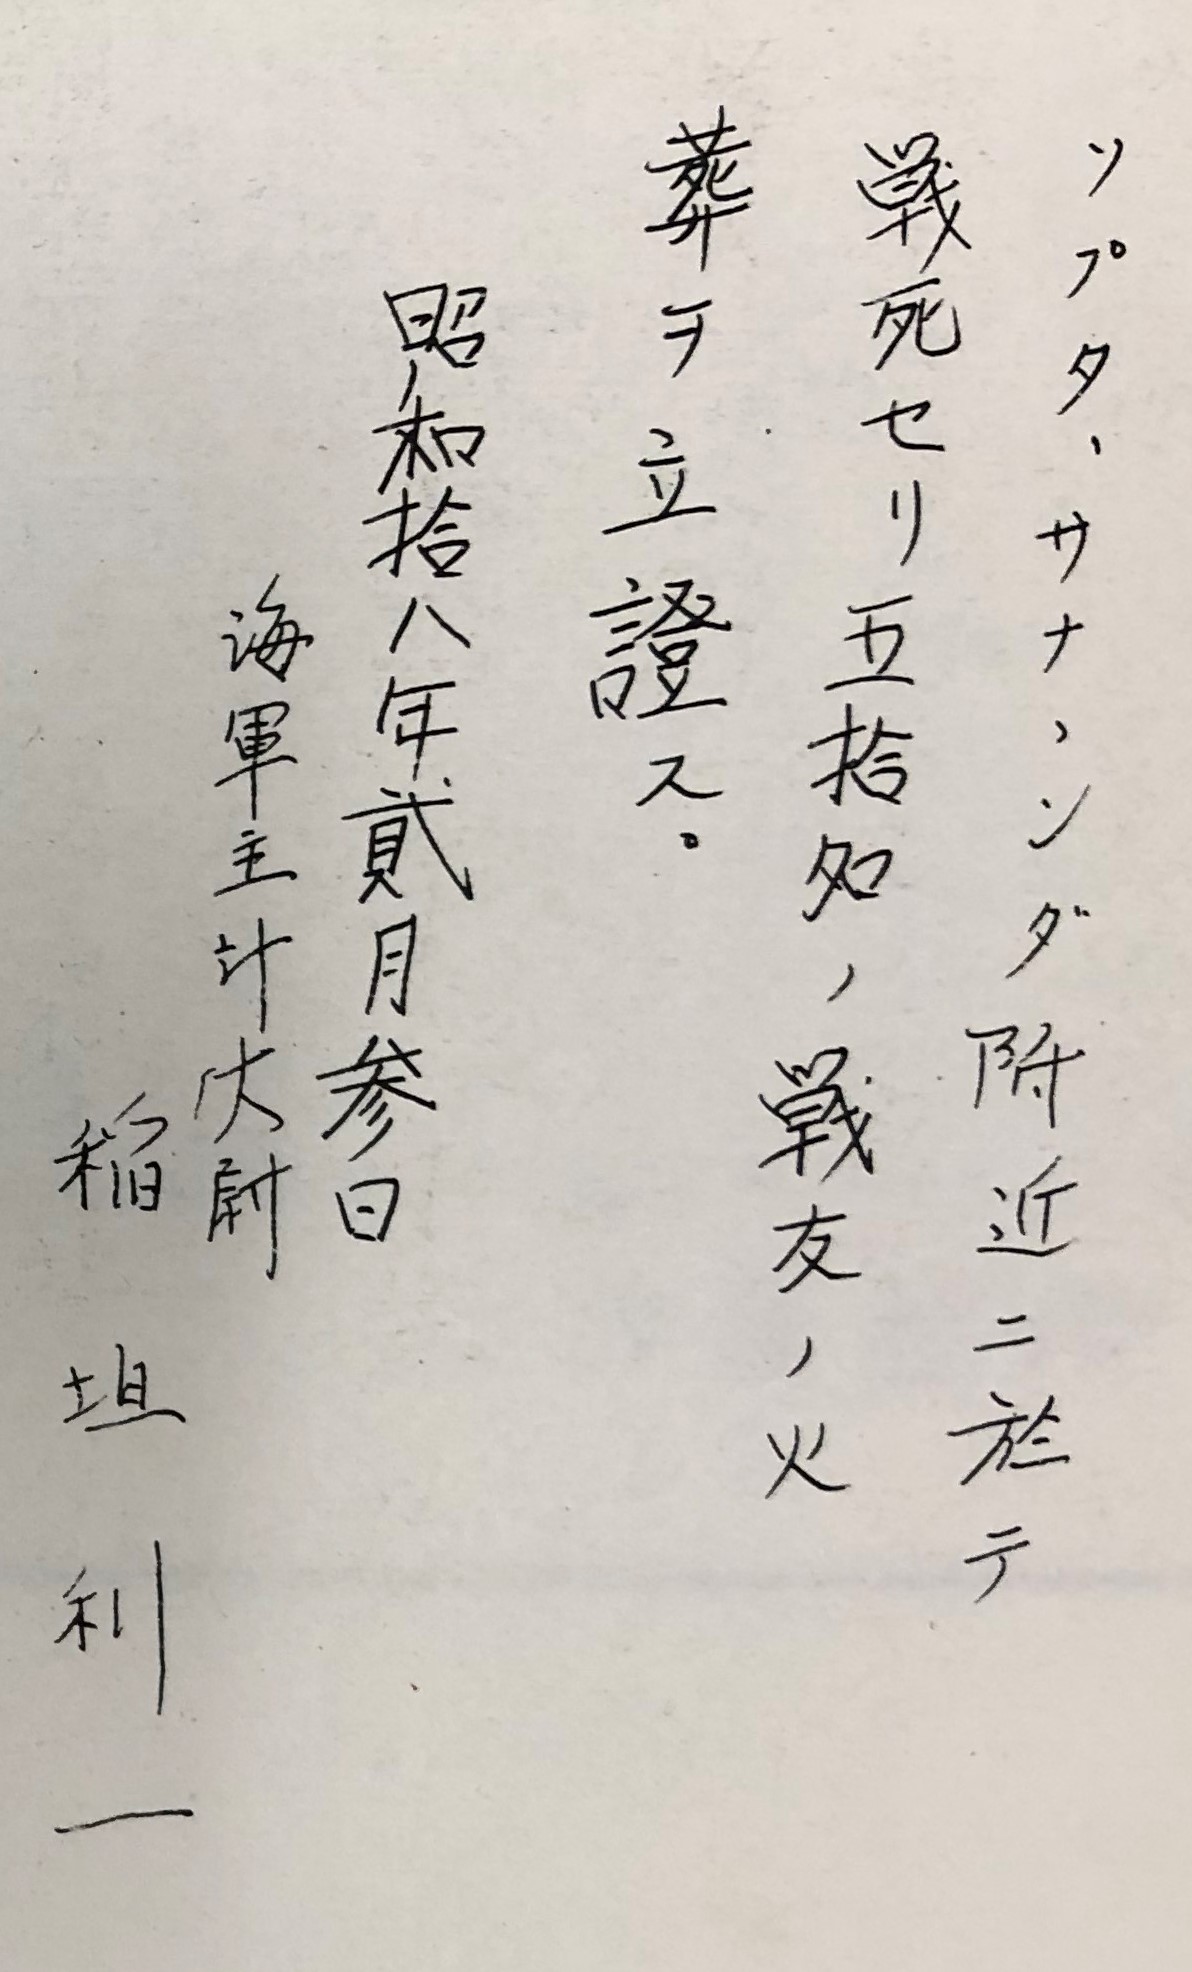 ソプタ、サナンダ附近ニ於テ
戦死セリ五拾名ノ戦友ノ火
葬ヲ立證ス。
昭和拾八年貳月参日
海軍主计大尉
稲垣利一